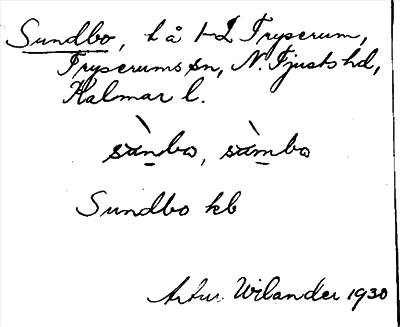 Sundbo, h å 1-2 Tryserum,
Tryserums sn, N. Tjusts hd,
Kalmar l.
sànbo, sàmbo
Sundbo kb
Artur Wilander 1930